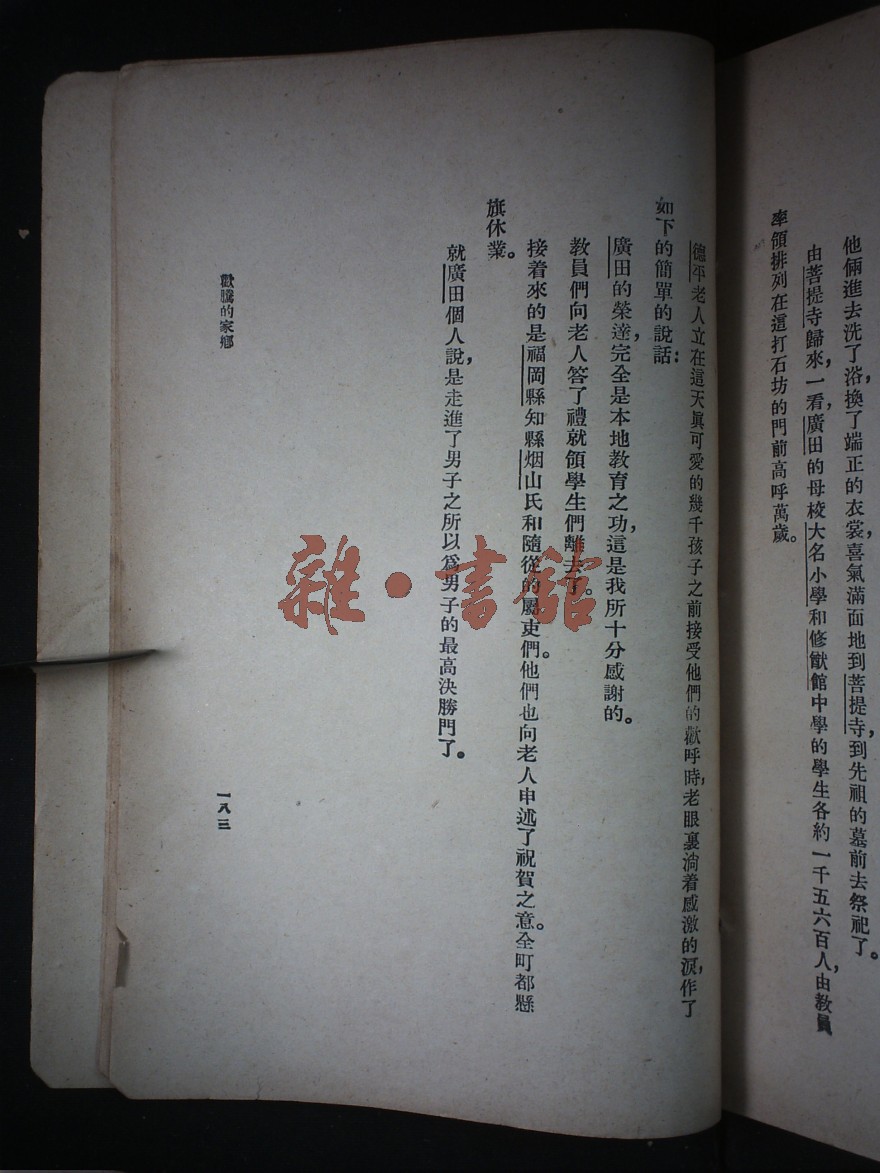 他倆進去洗了浴,換了端正的衣裳,喜氣滿面地到菩提寺,到先祖的墓前去祭祀了。
由菩提寺歸來,一看,廣田的母校大名小學和修猷館中學的學生各約一千五六百人,由敎員
率領排列在這打石坊的門前高呼萬歲。
德平老人立在這天眞可愛的幾千孩子之前接受他們的歡呼時,老眼裏淌着感激的淚,作了
如下的簡單的說話:
廣田的榮達,完全是本地敎育之功,這是我所十分感謝的。
敎員們向老人答了禮就領學生們離去了。
接着來的是福岡縣知縣烟山氏和隨從的屬吏們。他們也向老人申述了祝賀之意。全町都懸
旗休業。
就廣田個人說,是走進了男子之所以爲男子的最高決勝門了。
歡騰的家鄉
一八三
雜·書館